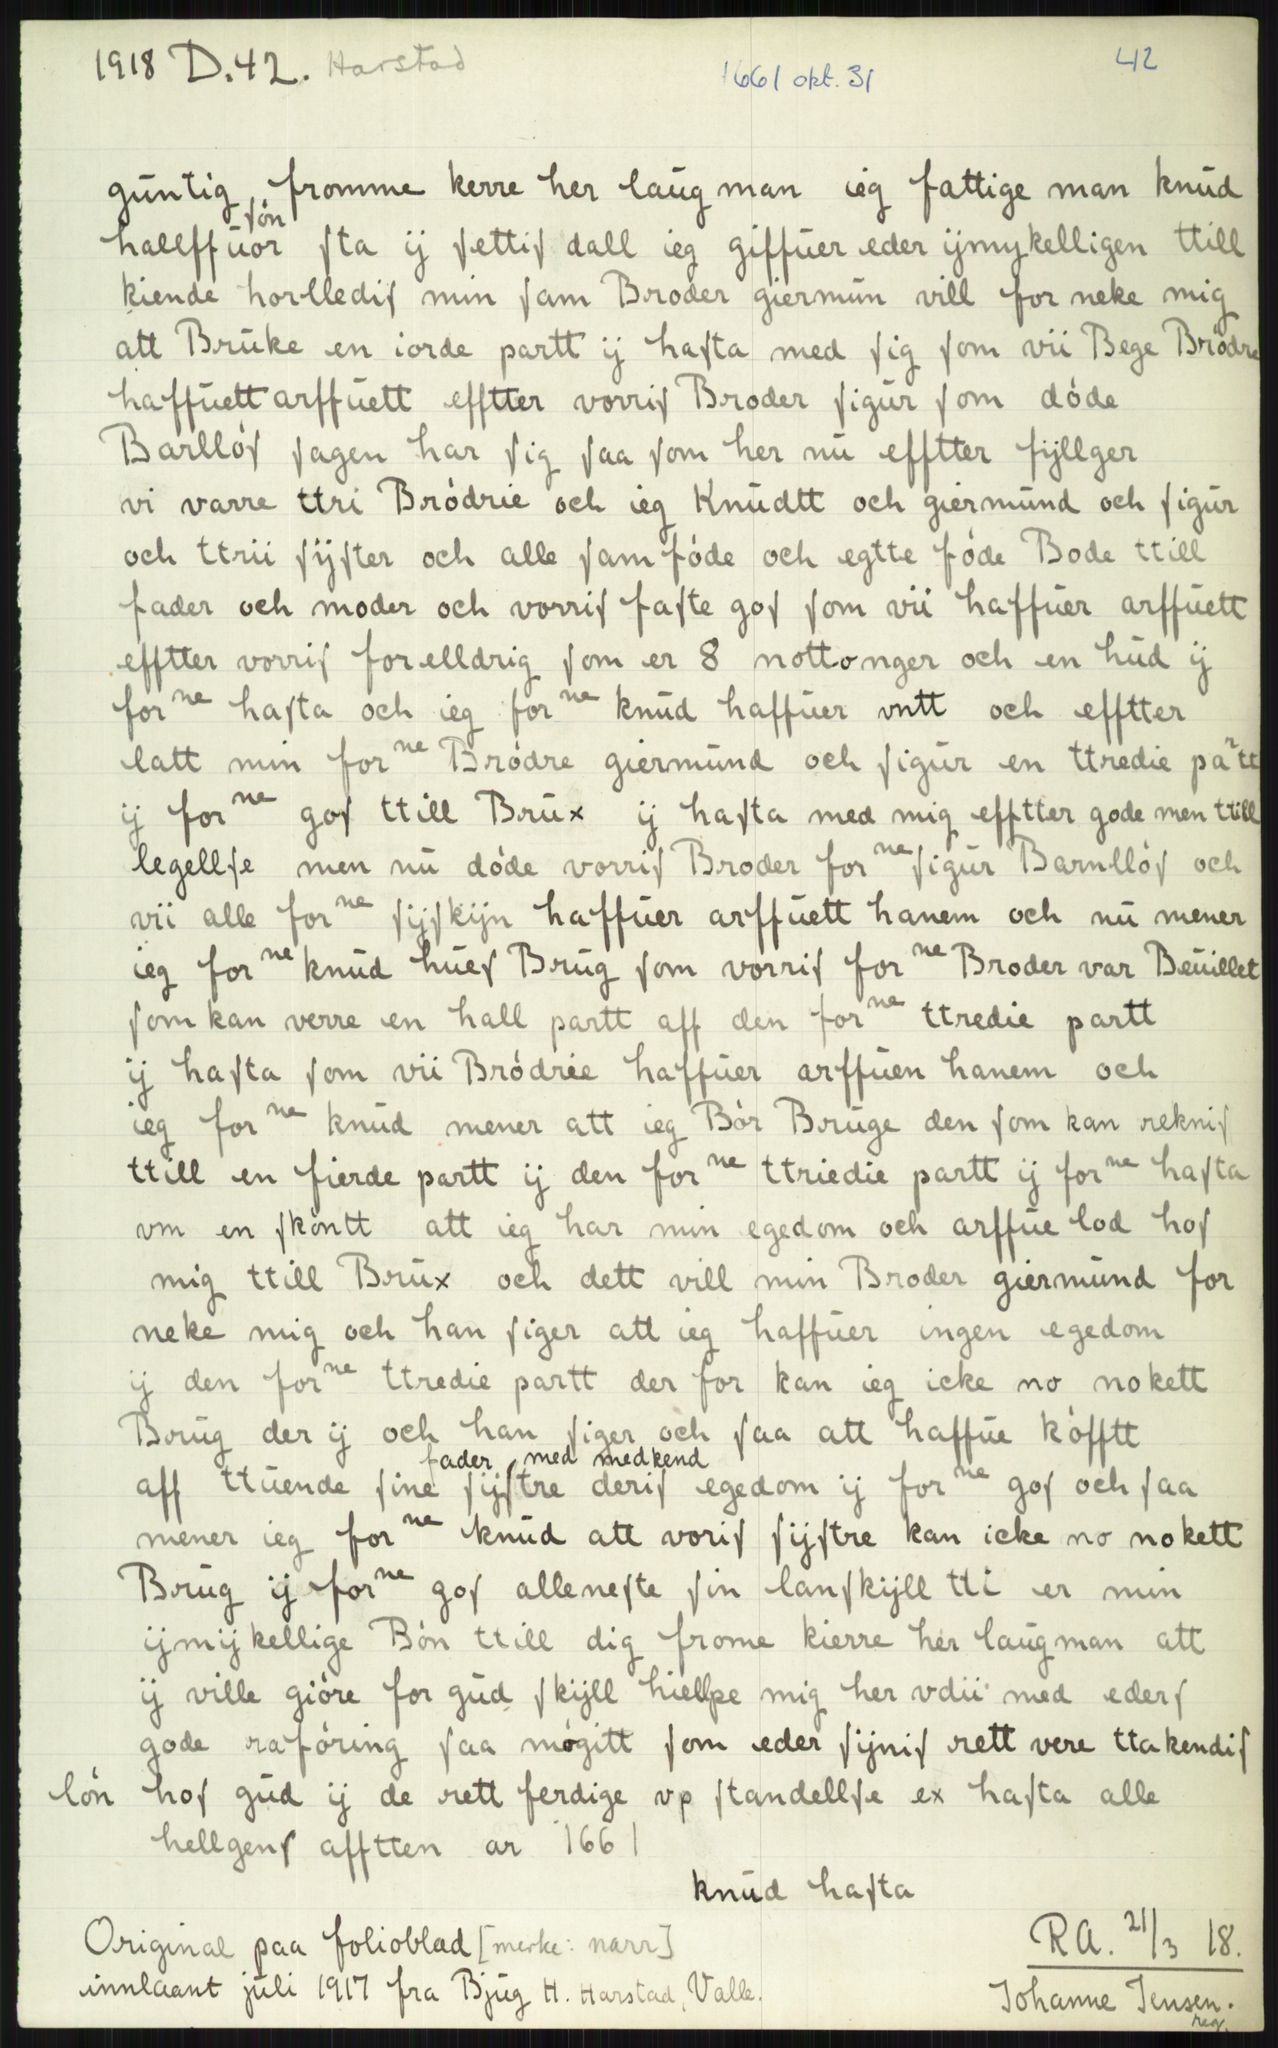 1918 D.42. Harstad
1661 okt. 31
42
guntig fromme kerre her laugman ieg fattige man knud
hallffuor søn sta ij settis dall ieg giffuer eder ijmykelligen ttill
kiende horlledis min sam Broder giermun vill for neke mig
att Bruke en iorde partt ij hasta med sig som vii Bege Brødre
haffuett arffuett efftter vorris Broder sigur som døde
Barlløs sagen har sig saa som her nu efftter fijllger
vi varre ttri Brødrie och ieg Knudtt och giermund och sigur
och ttrii sijster och alle sam føde och egtte føde Bode ttill
fader och moder och vorris faste gos som vii haffuer arffuett
efftter vorris forelldrig som er 8 nottonger och en hud ij
for ne hasta och ieg for ne knud haffuer vntt och efftter
latt min for ne Brødre giermund och sigur en ttredie partt
ij for ne gos ttill Brux ij hasta med mig efftter gode men ttill
legellse men nu døde vorris Broder for ne sigur Barnlløs och
vii alle for ne sijskijn haffuer arffuett hanem och nu mener
ieg for ne knud hues Brug som vorris for ne Broder var Beuillet
som kan verre en hall partt aff den for ne ttredie partt
ij hasta som vii Brødrie haffuer arffuen hanem och
ieg for ne knud mener att ieg Bør Bruge den som kan reknis
ttill en fierde partt ij den for ne ttriedie partt ij for ne hasta
vm en skøntt att ieg har min egedom och arffue lod hos
mig ttill Brux och dett vill min Broder giermund for
neke mig och han siger att ieg haffuer ingen egedom
ij den for ne ttredie partt der for kan ieg icke no nokett
Brug der ij och han siger och saa att haffue køfftt
fader med medkend
aff ttuende sine sijstre deris egedom ij for ne gos och saa
mener ieg for ne knud att voris sijstre kan icke no nokett
Brug ij for ne gos alleneste sin lanskijll tti er min
ijmijkellige Bøn ttill dig frome kierre her laugman att
ij ville giøre for gud skijll hiellpe mig her vdii med eders
gode raføring saa møgitt som eder sijnis rett vere ttakendis
løn hos gud ij de rett ferdige vp standellse ex hasta alle
hellgens afftten ar 1661
knud hasta
Original paa folioblad [merke: narr]
innlaant juli 1917 fra Bjug H. Harstad, Valle.
RA. 21/3 18.
Johanne Jensen.
reg.